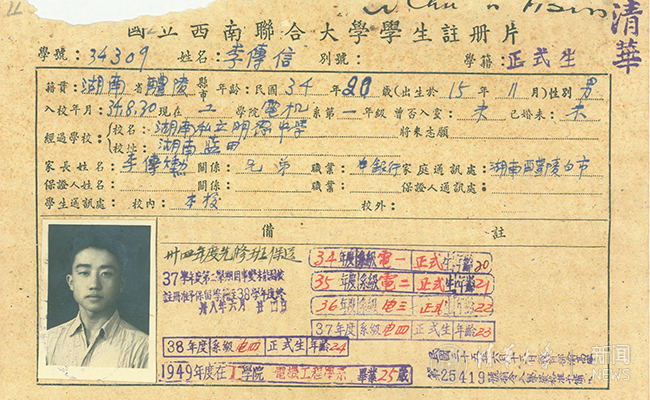 清華
國立西南聯合大學學生註册片
學號：34309 姓名：李傳信 別號： 學籍：正式生
籍貫：湖南省醴陵縣市 年齡：民國34年20歲(出生於15年11月)性別男
入校年月：34.8.30現在工學院電机系第一年級 曾否入室：未 已婚未：未
經過學校：校名：湖南私立明德中學 將來志願
校址：湖南藍田
家長姓名：李傳勳 關係：兄弟 職業：中銀行 家庭通訊處：湖南醴陵白市
保證人姓名： 關係： 職業： 保證人通訊處：
學生通訊處：校內：本校 校外：
備註
卅四年度先修班保送
34年度系級電一正式生年齡20
35年度系級電二正式生年齡21
36年度系級电三正式生年齡22
37年度系級电四正式生年齡23
38年度系級电四正式生年齡24
1949年度在工學院電機工程學系畢業25歲
第25419號
新闻
NEWS